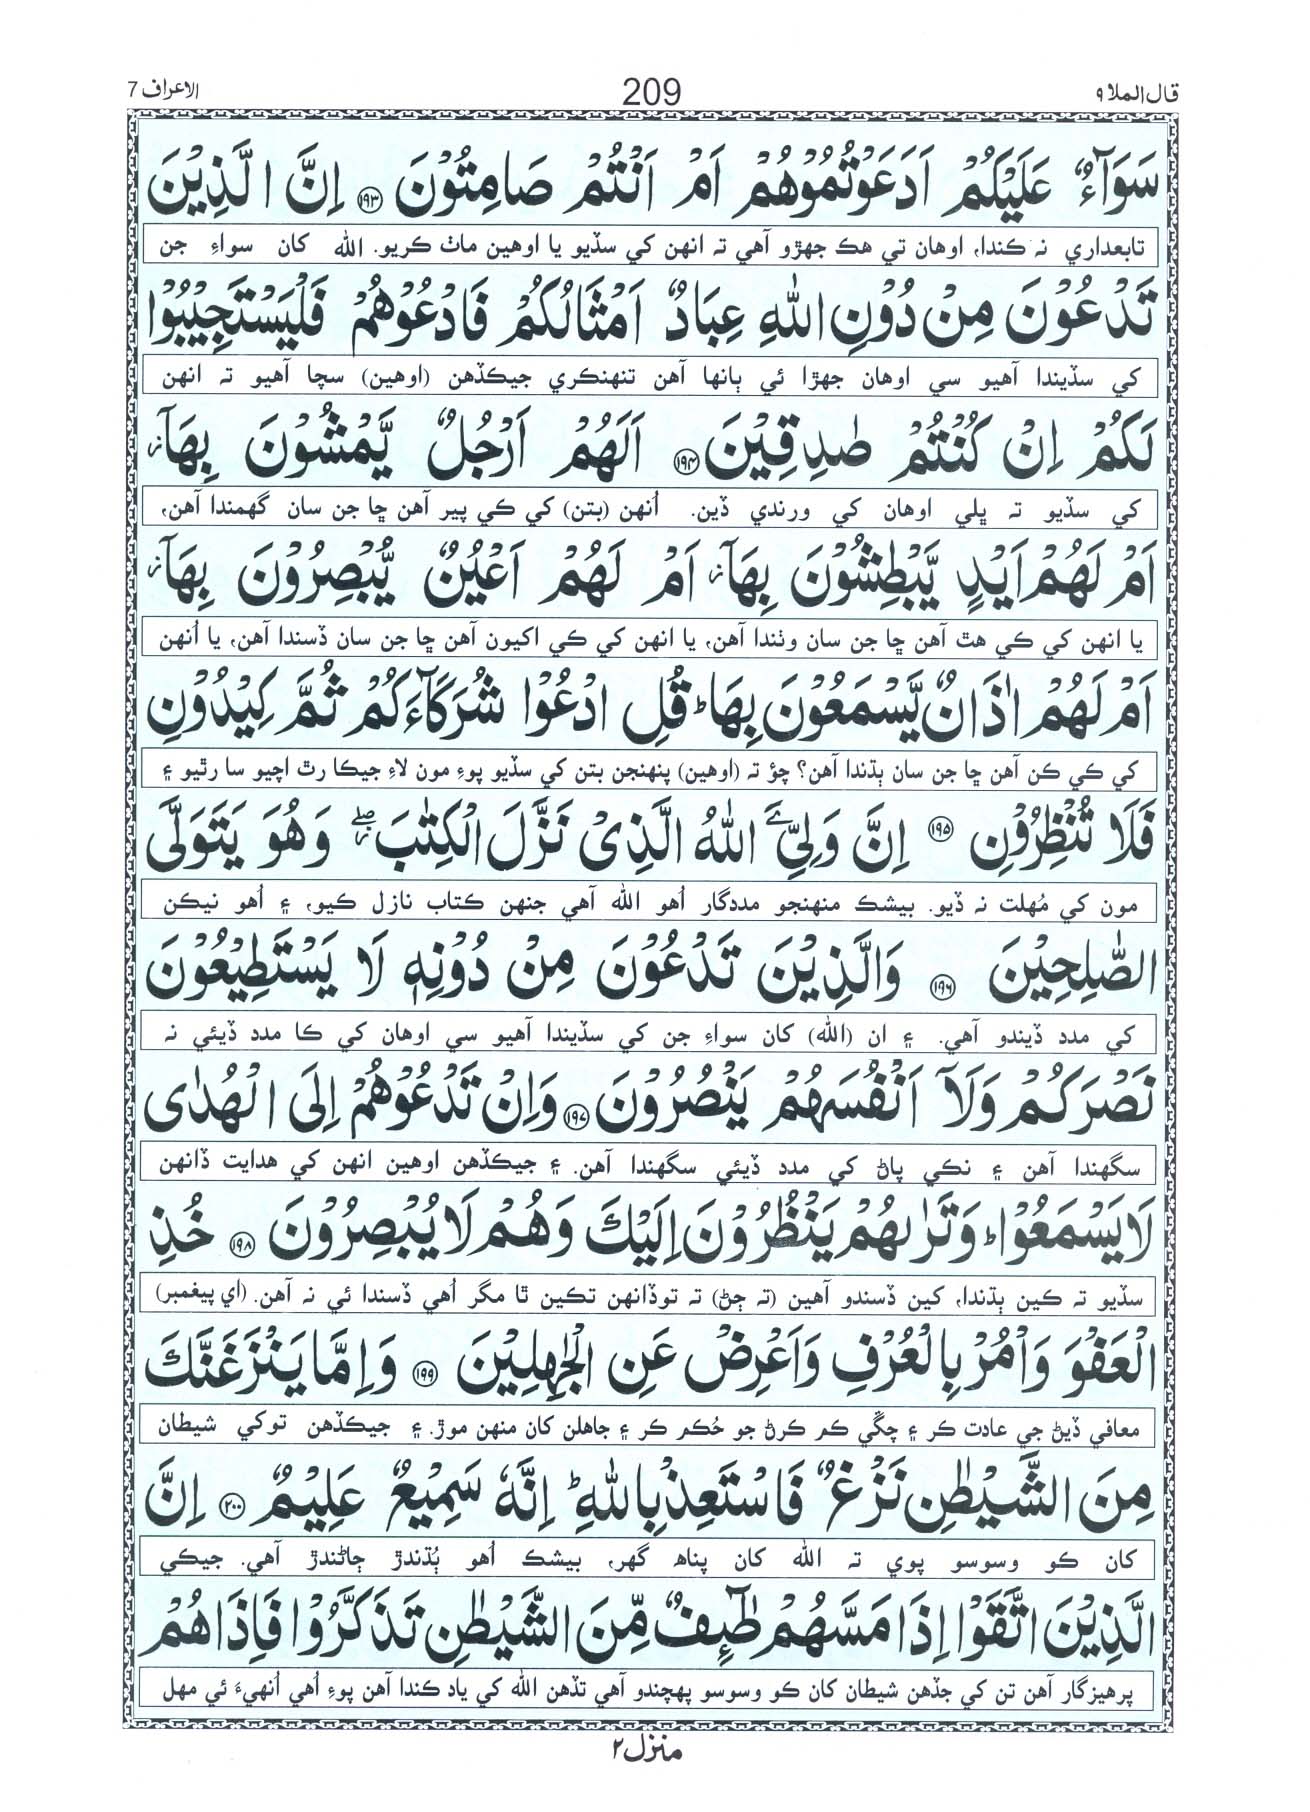 قال الملا ٩ 209 الاعراف 7
سَوَآءٌ عَلَيْكُمْ اَدَعَوْتُمُوْهُمْ اَمْ اَنْتُمْ صَامِتُوْنَ ۝۱۹۳ اِنَّ الَّذِيْنَ
تابعداري نہ ڪندا، اوهان تي هڪ جهڙو آهي تہ انهن کي سڏيو يا اوهين ماٺ ڪريو. الله کان سواءِ جن
تَدْعُوْنَ مِنْ دُوْنِ اللهِ عِبَادٌ اَمْثَالُكُمْ فَادْعُوْهُمْ فَلْيَسْتَجِيْبُوْا
کي سڏيندا آهيو سي اوهان جهڙا ئي ٻانها آهن تنهنڪري جيڪڏهن (اوهين) سچا آهيو تہ انهن
لَكُمْ اِنْ كُنْتُمْ صٰدِقِيْنَ ۝۱۹۴ اَلَهُمْ اَرْجُلٌ يَّمْشُوْنَ بِهَآ ز
کي سڏيو تہ ڀلي اوهان کي ورندي ڏين. اُنهن (بتن) کي ڪي پير آهن ڇا جن سان گهمندا آهن،
اَمْ لَهُمْ اَيْدٍ يَّبْطِشُوْنَ بِهَآ ز اَمْ لَهُمْ اَعْيُنٌ يُّبْصِرُوْنَ بِهَآ ز
يا انهن کي ڪي هٿ آهن ڇا جن سان وٺندا آهن، يا انهن کي ڪي اکيون آهن ڇا جن سان ڏسندا آهن، يا اُنهن
اَمْ لَهُمْ اٰذَانٌ يَّسْمَعُوْنَ بِهَا ط قُلِ ادْعُوْا شُرَكَآءَكُمْ ثُمَّ كِيْدُوْنِ
کي ڪي ڪن آهن ڇا جن سان ٻڌندا آهن؟ چؤ تہ (اوهين) پنهنجن بتن کي سڏيو پوءِ مون لاءِ جيڪا رٿ اچيو سا رٿيو ۽
فَلَا تُنْظِرُوْنِ ۝۱۹۵ اِنَّ وَلِيِّ َۧ اللهُ الَّذِيْ نَزَّلَ الْكِتٰبَ ز وَهُوَ يَتَوَلَّى
مون کي مُهلت نہ ڏيو. بيشڪ منهنجو مددگار اُهو الله آهي جنهن ڪتاب نازل ڪيو، ۽ اُهو نيڪن
الصّٰلِحِيْنَ ۝۱۹۶ وَالَّذِيْنَ تَدْعُوْنَ مِنْ دُوْنِهٖ لَا يَسْتَطِيْعُوْنَ
کي مدد ڏيندو آهي. ۽ ان (الله) کان سواءِ جن کي سڏيندا آهيو سي اوهان کي ڪا مدد ڏيئي نہ
نَصْرَكُمْ وَلَآ اَنْفُسَهُمْ يَنْصُرُوْنَ ۝۱۹۷ وَاِنْ تَدْعُوْهُمْ اِلَى الْهُدٰى
سگهندا آهن ۽ نڪي پاڻ کي مدد ڏيئي سگهندا آهن. ۽ جيڪڏهن اوهين انهن کي هدايت ڏانهن
لَا يَسْمَعُوْا ط وَتَرٰىهُمْ يَنْظُرُوْنَ اِلَيْكَ وَهُمْ لَا يُبْصِرُوْنَ ۝۱۹۸ خُذِ
سڏيو تہ ڪين ٻڌندا، کين ڏسندو آهين (تہ ڄڻ) تہ توڏانهن تڪين ٿا مگر اُهي ڏسندا ئي نہ آهن. (اي پيغمبر)
الْعَفْوَ وَاْمُرْ بِالْعُرْفِ وَاَعْرِضْ عَنِ الْجٰهِلِيْنَ ۝۱۹۹ وَاِمَّا يَنْزَغَنَّكَ
معافي ڏيڻ جي عادت ڪر ۽ چڱي ڪم ڪرڻ جو حُڪم ڪر ۽ جاهلن کان منهن موڙ. ۽ جيڪڏهن توکي شيطان
مِنَ الشَّيْطٰنِ نَزْغٌ فَاسْتَعِذْ بِاللهِ ط اِنَّهٗ سَمِيْعٌ عَلِيْمٌ ۝۲۰۰ اِنَّ
کان ڪو وسوسو پوي تہ الله کان پناهہ گهر، بيشڪ اُهو ٻُڌندڙ ڄاڻندڙ آهي. جيڪي
الَّذِيْنَ اتَّقَوْا اِذَا مَسَّهُمْ طٰٓئِفٌ مِّنَ الشَّيْطٰنِ تَذَكَّرُوْا فَاِذَا هُمْ
پرهيزگار آهن تن کي جڏهن شيطان کان ڪو وسوسو پهچندو آهي تڏهن الله کي ياد ڪندا آهن پوءِ اُهي اُنهيءَ ئي مهل
منزل ۲